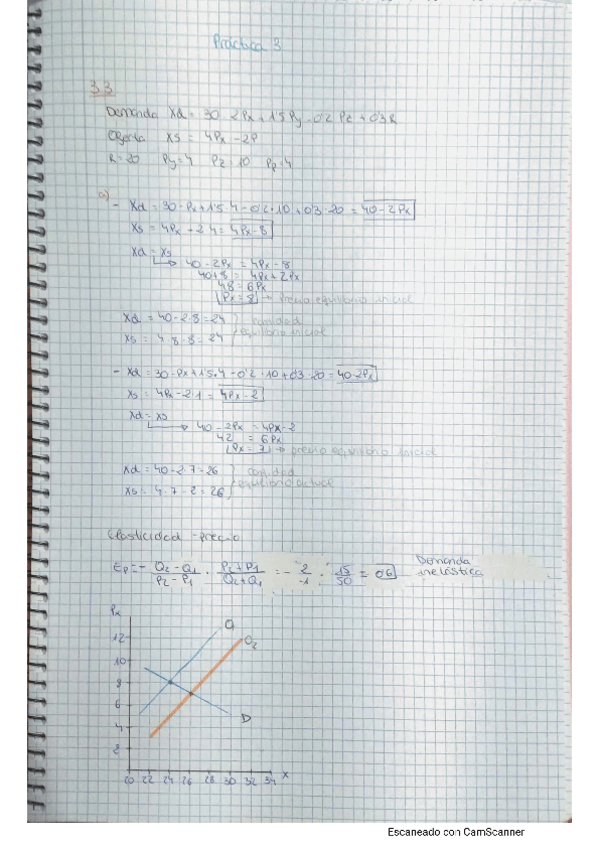 Práctica 3
3.3
Demanda Xd = 30 - 2Px + 1'5Py - 0'2 Pz + 0'3 R
Oferta Xs = 4Px - 2P
R=20 Py=4 Pz=10 Pp=4
a) - Xd = 30 - Px + 1'5 · 4 - 0'2 · 10 + 0'3 · 20 = 40 - 2Px
Xs = 4Px - 2 4 = 4Px - 8
Xd = Xs
40 - 2Px = 4Px - 8
40+8 = 4Px + 2Px
48 = 6Px
Px = 8 → precio equilibrio inicial
Xd = 40 - 2 · 8 = 24 } cantidad
Xs = 4 · 8 - 8 = 24 } equilibrio inicial
- Xd = 30 - Px + 1'5 · 4 - 0'2 · 10 + 0'3 · 20 = 40 - 2Px
Xs = 4Px - 2 · 1 = 4Px - 2
Xd = Xs
40 - 2Px = 4Px - 2
42 = 6Px
Px = 7 → precio equilibrio inicial
Xd = 40 - 2 · 7 = 26 } cantidad
Xs = 4 · 7 - 2 = 26 } equilibrio actual
Elasticidad - precio
Ep = - Q2 - Q1 / P2 - P1 · P2 + P1 / Q2 + Q1 = - 2 / -1 · 15 / 50 = 0'6 Demanda inelástica
Px
O
O2
12
10
8
6
4
2
D
20 22 24 26 28 30 32 34 X
Escaneado con CamScanner